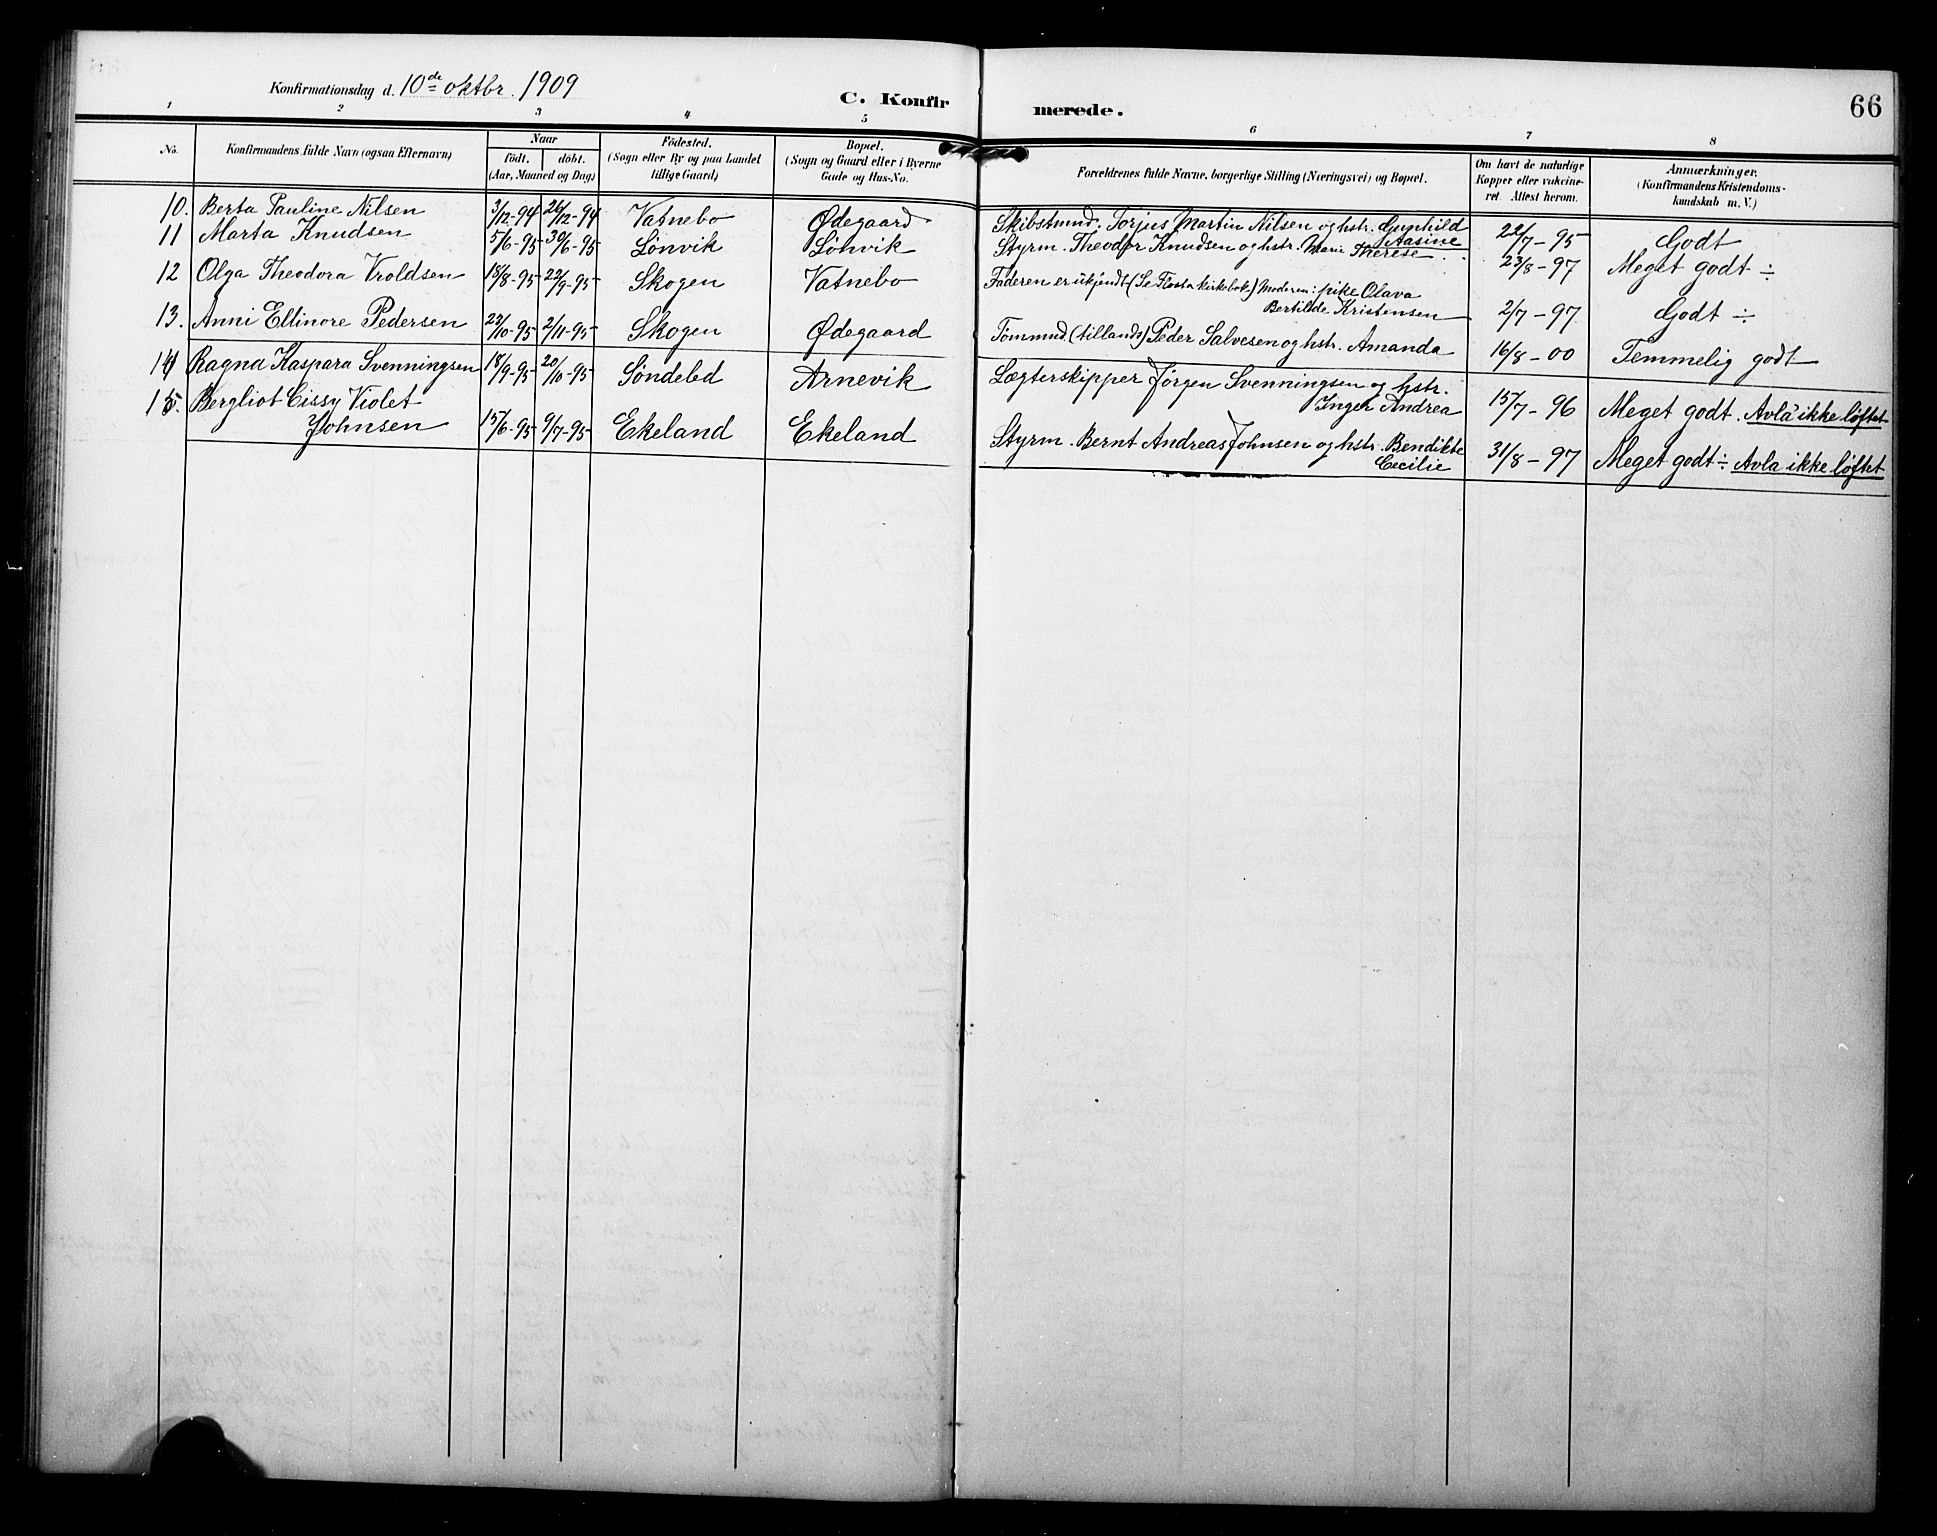 Konfirmationsdag d. 10de oktbr. 1909
C. Konfirmerede.
66
1 2 3 4 5 6 7 8
No.
Konfirmandens fulde Navn (ogsaa Efternavn)
Naar
födt. döbt.
(Aar, Maaned og Dag)
Födested.
(Sogn eller By og paa Landet
tillige Gaard)
Bopæl.
(Sogn og Gaard eller i Byerne
Gade og Hus-No.
Forældrenes fulde Navne, borgerlige Stilling (Næringsvei) og Bopæl.
Om havt de naturlige
Kopper eller vakcine-
ret Attest herom.
Anmærkninger.
(Konfirmandens Kristendoms-
kundskab m. V.)
10. Berta Pauline Nilsen 3/12-94 26/12-94 Vatnebo Ødegaard Skibstmd. Torjus Martin Nilsen og hstr. Gunhild Aasine 22/7-95 Godt
11 Marta Knudsen 5/6-95 30/6-95 Lønvik Lønvik Styrm. Theodor Knudsen og hstr. Marie Therese 23/8-97 Meget godt ÷
12 Olga Theodora Vroldsen 18/8-95 22/9-95 Skogen Vatnebo Faderen er ukjendt (Se Flosta kirkebok) Moderen: pike Olava
Bertilde Kristensen 2/7-97 Godt ÷
13. Anni Ellinore Pedersen 22/10-95 2/11-95 Skogen Ødegaard Tömmd. (tillands) Peder Salvesen og hstr. Amanda 16/8-00 Temmelig godt
14 Ragna Kaspara Svenningsen 18/9-95 20/10-95 Söndeled Arnevik Lægterskipper Jörgen Svenningsen og hstr.
Inger Andrea 15/7-96 Meget godt. Avla ikke løftet
15. Bergliot Cissy Violet
Johnsen 15/6-95 9/7-95 Ekeland Ekeland Styrm. Bernt Andreas Johnsen og hstr. Bendikte
Cecilie 31/8-97 Meget godt ÷ Avla ikke løftet